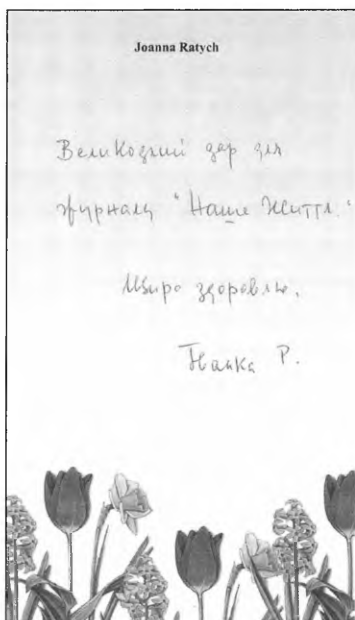 Joanna Ratych
Великодний дар для
журналу "Наше Життя."
Щиро здоровлю,
Р.